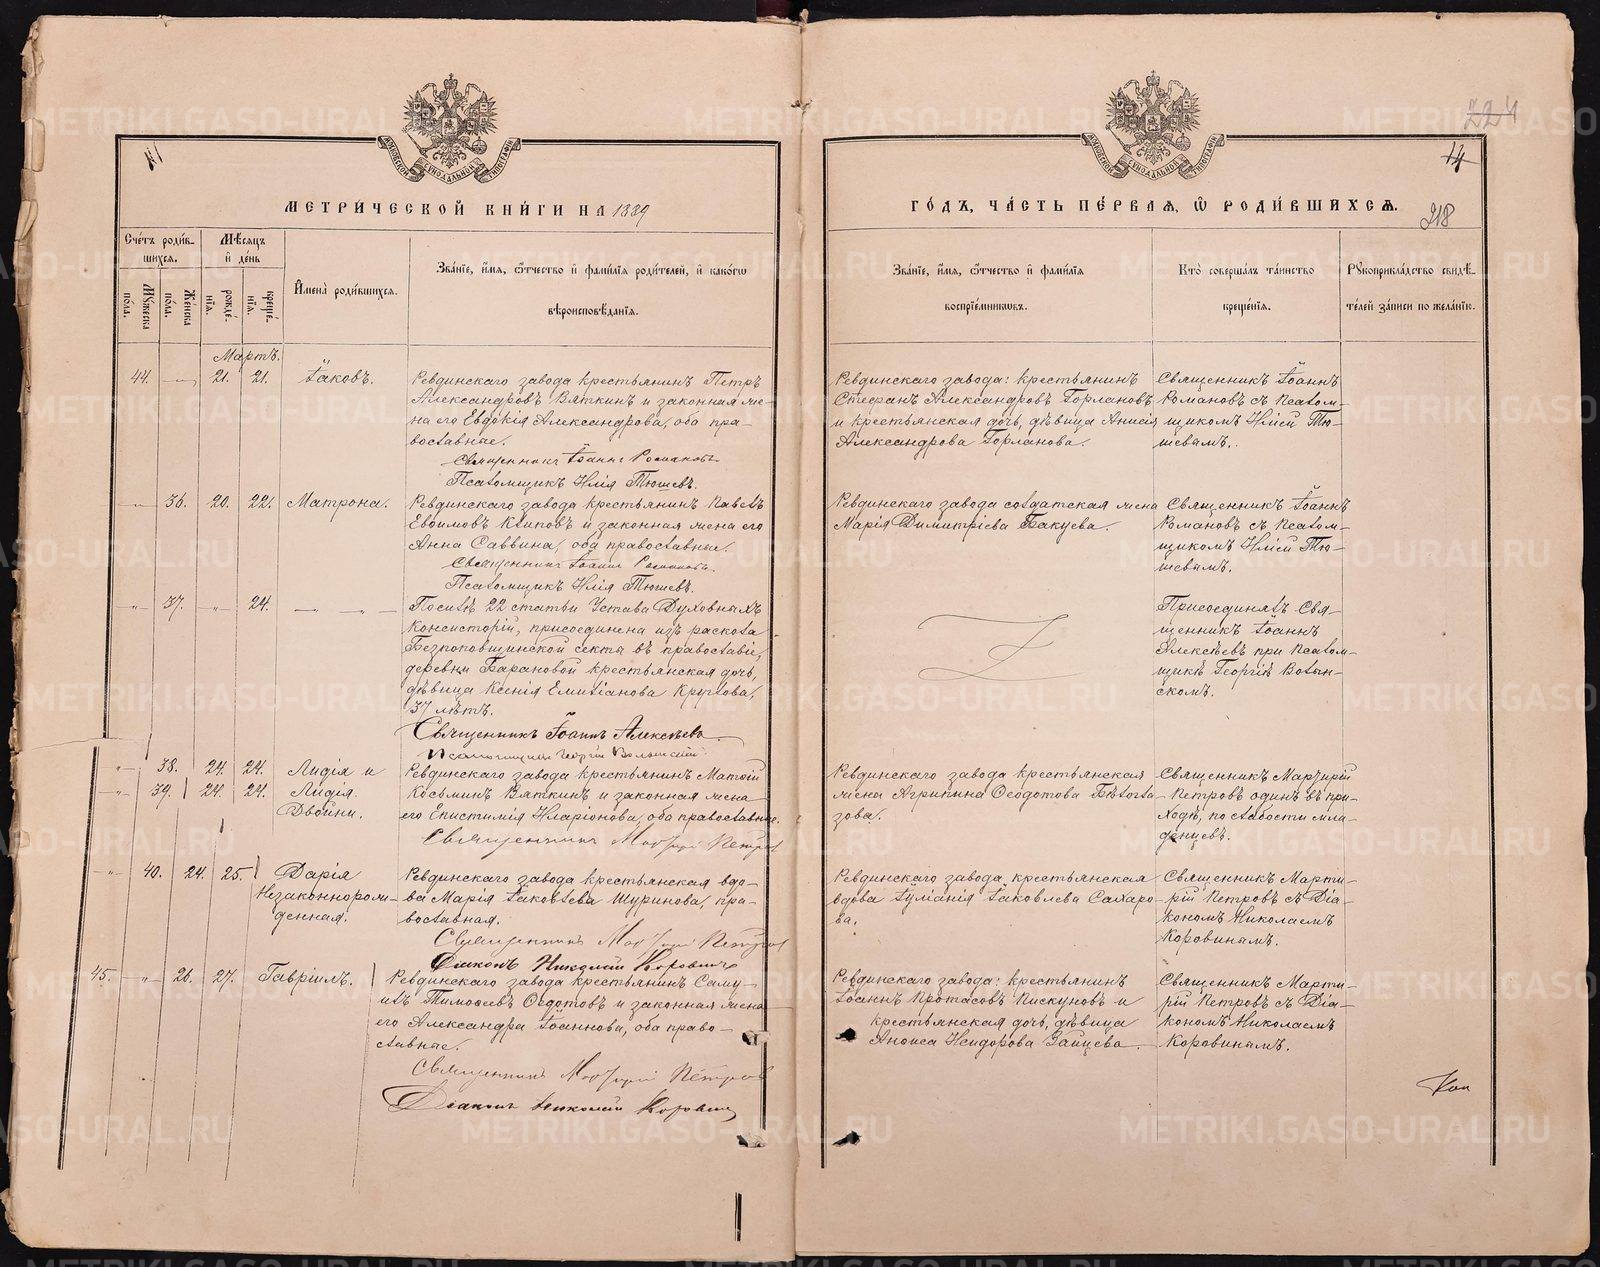 МЕТРИ́ЧЕСКОЙ КНИ́ГИ НА 1889
Сче́тъ роди́в-
шихся.
Мѣ́сяцъ
и҆ де́нь
Мꙋ́жеска
по́ла.
Же́нска
по́ла.
рожде́-
нїя.
креще́-
нїя.
И҆мена̀ роди́вшихся.
Зва́нїе, и҆́мя, ѻ҆́тчество и҆ фами́лїя роди́телей, и҆ како́гѡ
вѣроисповѣ́данїя.
Мартъ.
44. — 21. 21. Іаковъ.
Ревдинскаго завода крестьянинъ Петръ
Александровъ Вяткинъ и законная же-
на его Евдокія Александрова, оба пра-
вославные.
Священникъ Іоаннъ Романовъ
Псаломщикъ Илія Тюшевъ.
-"- 36. 20. 22. Матрона.
Ревдинскаго завода крестьянинъ Павелъ
Евѳимовъ Клиповъ и законная жена его
Анна Саввина, оба православные.
Священникъ Іоаннъ Романовъ.
Псаломщикъ Илія Тюшевъ.
-"- 37. -"- 24. — " —
По силѣ 22 статьи Устава Духовныхъ
Консисторій, присоединена изъ раскола
Безпоповщинской секты въ православіе,
деревни Барановой крестьянская дочь,
дѣвица Ксенія Емиліанова Круглова,
37 лѣтъ.
Священникъ Іоаннъ Алексѣевъ
Псаломщикъ Георгій Волынскій
-"- 38. 24. 24. Лидія и
-"- 39. 24. 24. Лидія.
Двойни.
Ревдинскаго завода крестьянинъ Матѳій
Косьминъ Вяткинъ и законная жена
его Епистимія Иларіонова, оба православные.
Священникъ Мартирій Петровъ
-"- 40. 24. 25. Дарія
Незаконнорож-
денная.
Ревдинскаго завода крестьянская вдо-
ва Марія Іаковлева Щуринова, пра-
вославная.
Священникъ Мартирій Петровъ
Діаконъ Николай Коровинъ
45. -"- 26. 27. Гавріилъ.
Ревдинскаго завода крестьянинъ Саму-
илъ Тимоѳеевъ Ѳедотовъ и законная жена
его Александра Іоаннова, оба право-
славные.
Священникъ Мартирій Петровъ
Діаконъ Николай Коровинъ
224
14
218
ГО́ДЪ, ЧА́СТЬ ПЕ́РВАЯ, Ѡ҆ РОДИ́ВШИХСЯ.
Зва́нїе, и҆́мя, ѻ҆́тчество и҆ фами́лїя
воспрїе́мникѡвъ.
Кто̀ соверша́лъ та́инство
креще́нїя.
Рꙋкоприкла́дство свидѣ́-
телей за́писи по жела́нїю.
Ревдинскаго завода: крестьянинъ
Стефанъ Александровъ Горлановъ
и крестьянская дочь, дѣвица Анисія
Александрова Горланова.
Священникъ Іоаннъ
Романовъ съ Псалом-
щикомъ Иліей Тю-
шевымъ.
Ревдинскаго завода солдатская жена
Марія Димитріева Бакуева.
Священникъ Іоаннъ
Романовъ съ Псалом-
щикомъ Иліей Тю-
шевымъ.
Присоединялъ Свя-
щенникъ Іоаннъ
Алексѣевъ при Псалом-
щикѣ Георгіѣ Волын-
скомъ.
Ревдинскаго завода крестьянская
жена Агрипина Ѳеодотова Бѣлогла-
зова.
Священникъ Мартирій
Петровъ одинъ въ при-
ходѣ, по слабости мла-
денцевъ.
Ревдинскаго завода, крестьянская
вдова Іуліанія Іаковлева Сахаро-
ва.
Священникъ Марти-
рій Петровъ съ Діа-
кономъ Николаемъ
Коровинымъ.
Ревдинскаго завода: крестьянинъ
Іоаннъ Протасовъ Пискуновъ и
крестьянская дочь, дѣвица
Анѳиса Исидорова Зайцева.
Священникъ Марти-
рій Петровъ съ Діа-
кономъ Николаемъ
Коровинымъ.
METRIKI.GASO-URAL.RU